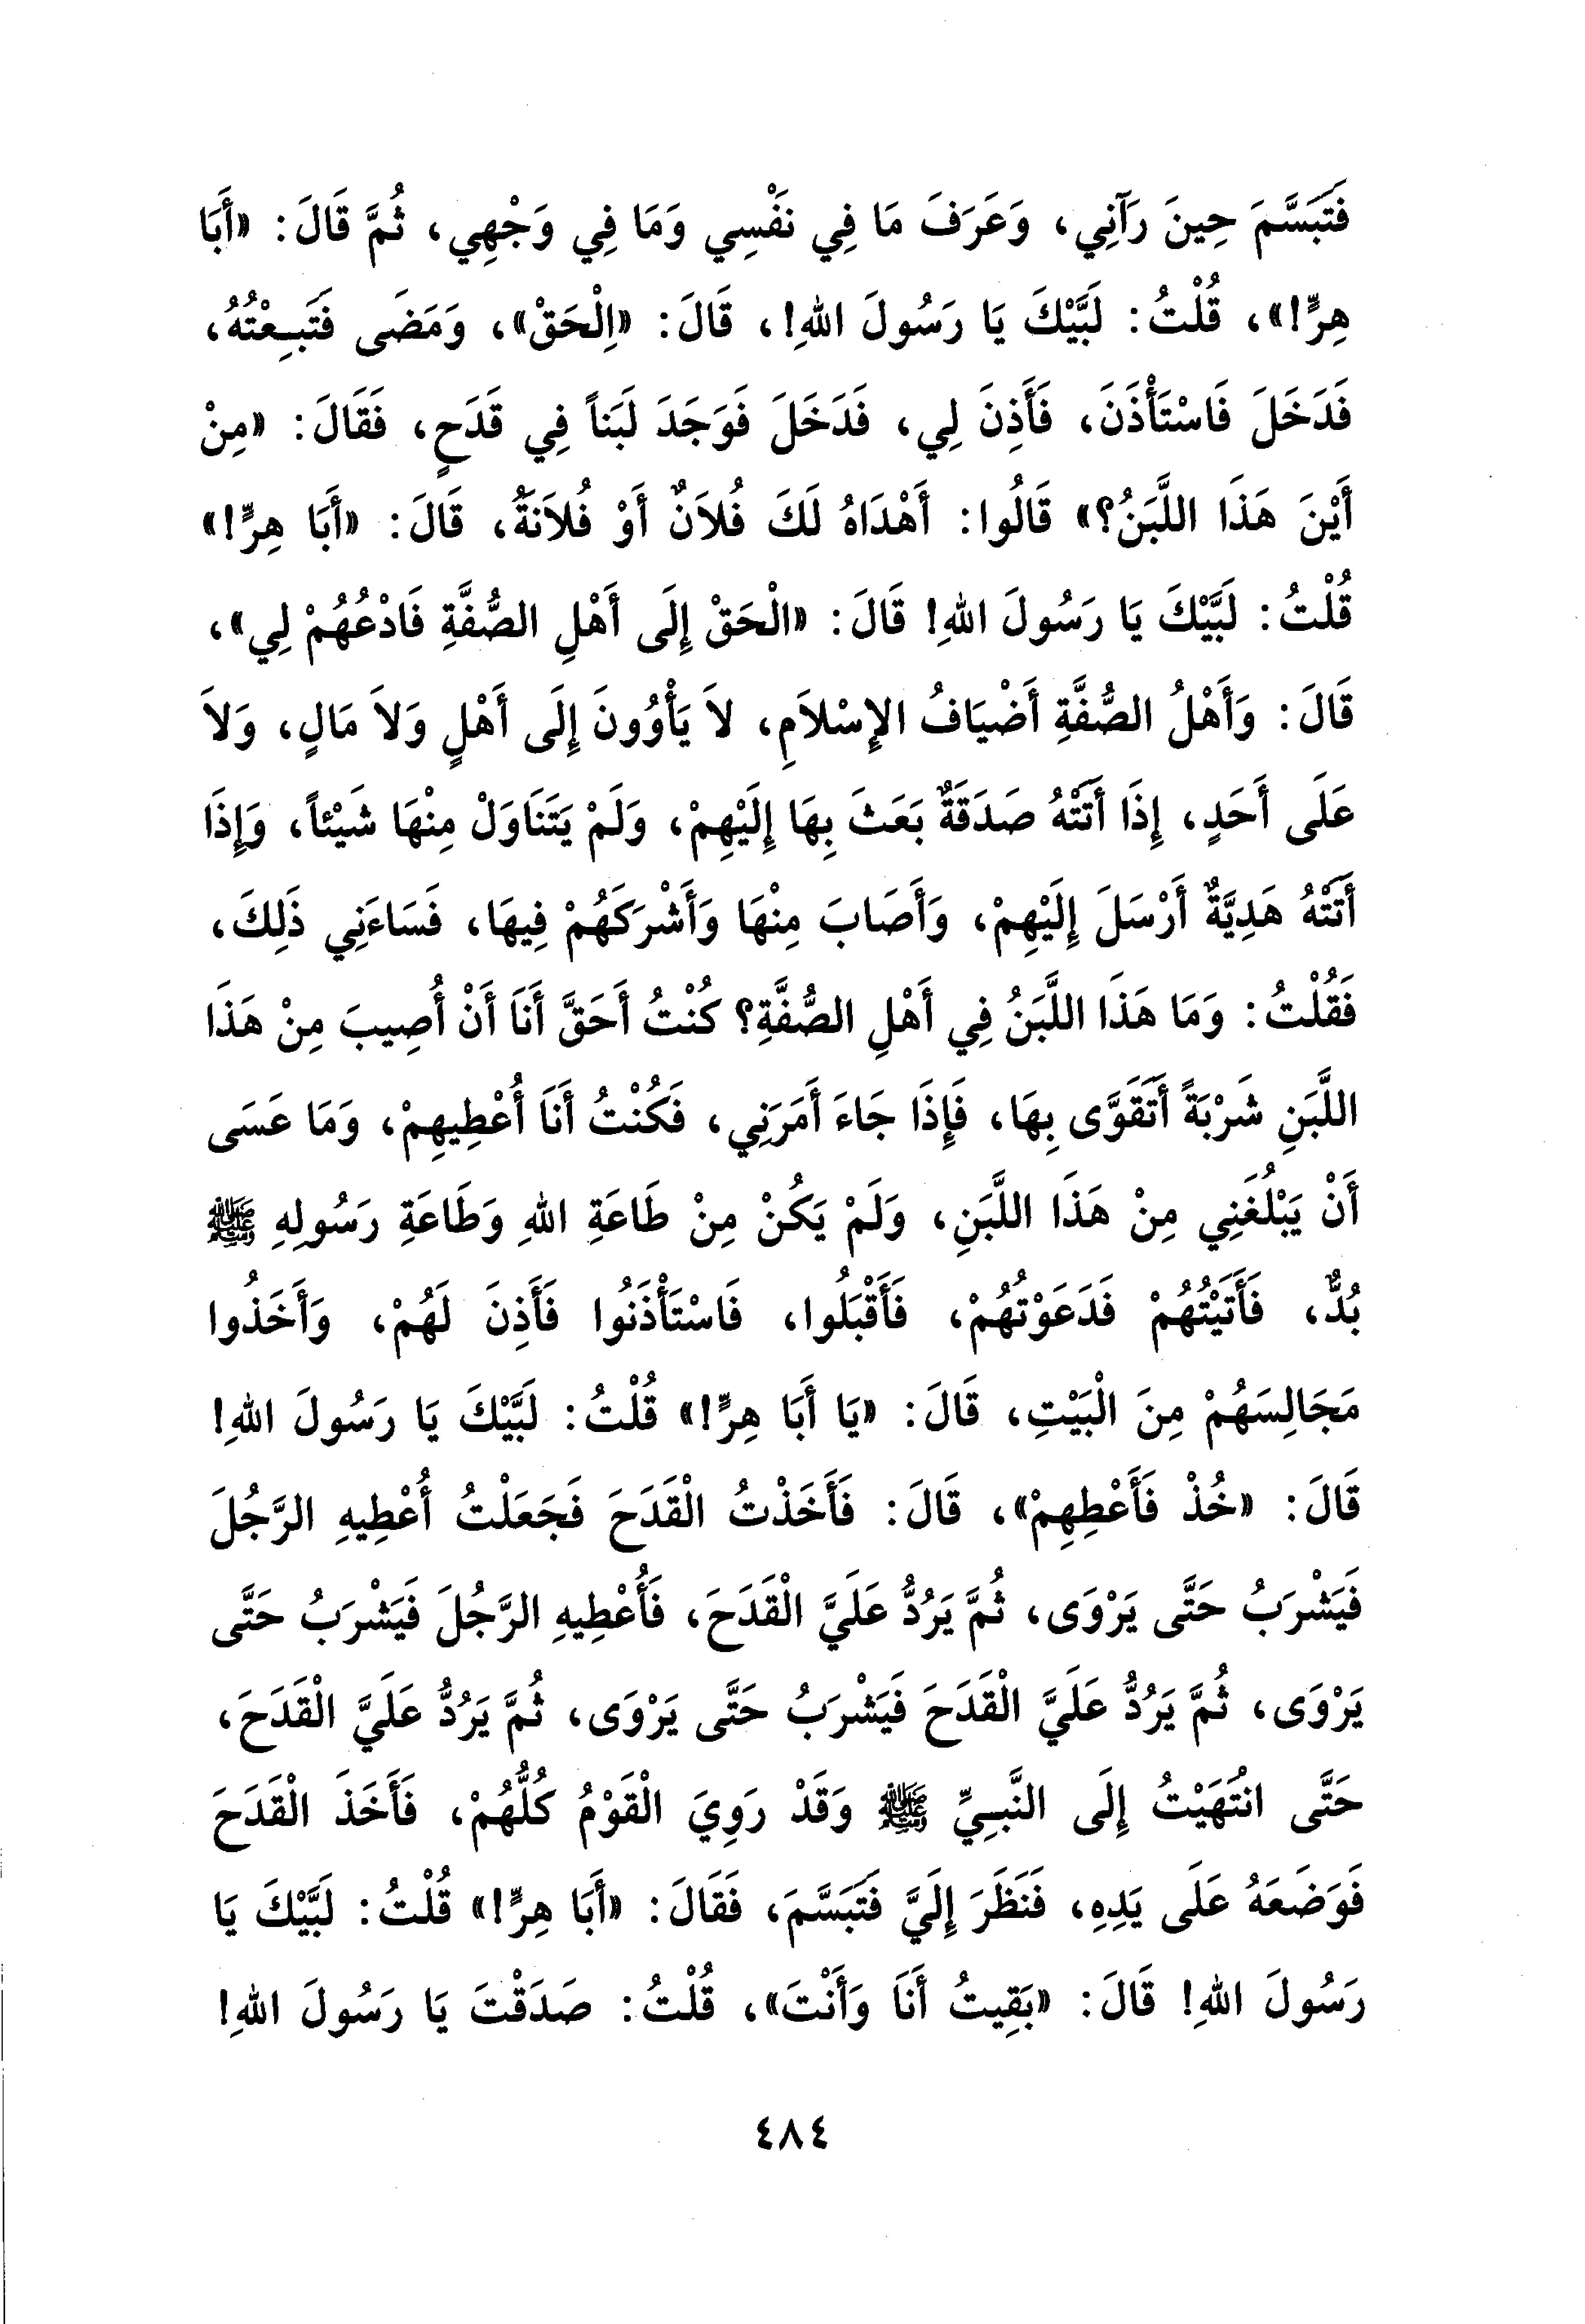 فَتَبَسَّمَ حِينَ رَآنِي، وَعَرَفَ مَا فِي نَفْسِي وَمَا فِي وَجْهِي، ثُمَّ قَالَ: «أَبَا
هِرٍّ!»، قُلْتُ: لَبَّيْكَ يَا رَسُولَ اللهِ!، قَالَ: «اِلْحَقْ»، وَمَضَى فَتَبِعْتُهُ،
فَدَخَلَ فَاسْتَأْذَنَ، فَأَذِنَ لِي، فَدَخَلَ فَوَجَدَ لَبَناً فِي قَدَحٍ، فَقَالَ: «مِنْ
أَيْنَ هَذَا اللَّبَنُ؟» قَالُوا: أَهْدَاهُ لَكَ فُلاَنٌ أَوْ فُلاَنَةُ، قَالَ: «أَبَا هِرٍّ!»
قُلْتُ: لَبَّيْكَ يَا رَسُولَ اللهِ! قَالَ: «الْحَقْ إِلَى أَهْلِ الصُّفَّةِ فَادْعُهُمْ لِي»،
قَالَ: وَأَهْلُ الصُّفَّةِ أَضْيَافُ الإِسْلاَمِ، لاَ يَأْوُونَ إِلَى أَهْلٍ وَلاَ مَالٍ، وَلاَ
عَلَى أَحَدٍ، إِذَا أَتَتْهُ صَدَقَةٌ بَعَثَ بِهَا إِلَيْهِمْ، وَلَمْ يَتَنَاوَلْ مِنْهَا شَيْئاً، وَإِذَا
أَتَتْهُ هَدِيَّةٌ أَرْسَلَ إِلَيْهِمْ، وَأَصَابَ مِنْهَا وَأَشْرَكَهُمْ فِيهَا، فَسَاءَنِي ذَلِكَ،
فَقُلْتُ: وَمَا هَذَا اللَّبَنُ فِي أَهْلِ الصُّفَّةِ؟ كُنْتُ أَحَقَّ أَنَا أَنْ أُصِيبَ مِنْ هَذَا
اللَّبَنِ شَرْبَةً أَتَقَوَّى بِهَا، فَإِذَا جَاءَ أَمَرَنِي، فَكُنْتُ أَنَا أُعْطِيهِمْ، وَمَا عَسَى
أَنْ يَبْلُغَنِي مِنْ هَذَا اللَّبَنِ، وَلَمْ يَكُنْ مِنْ طَاعَةِ اللهِ وَطَاعَةِ رَسُولِهِ ﷺ
بُدٌّ، فَأَتَيْتُهُمْ فَدَعَوْتُهُمْ، فَأَقْبَلُوا، فَاسْتَأْذَنُوا فَأَذِنَ لَهُمْ، وَأَخَذُوا
مَجَالِسَهُمْ مِنَ الْبَيْتِ، قَالَ: «يَا أَبَا هِرٍّ!» قُلْتُ: لَبَّيْكَ يَا رَسُولَ اللهِ!
قَالَ: «خُذْ فَأَعْطِهِمْ»، قَالَ: فَأَخَذْتُ الْقَدَحَ فَجَعَلْتُ أُعْطِيهِ الرَّجُلَ
فَيَشْرَبُ حَتَّى يَرْوَى، ثُمَّ يَرُدُّ عَلَيَّ الْقَدَحَ، فَأُعْطِيهِ الرَّجُلَ فَيَشْرَبُ حَتَّى
يَرْوَى، ثُمَّ يَرُدُّ عَلَيَّ الْقَدَحَ فَيَشْرَبُ حَتَّى يَرْوَى، ثُمَّ يَرُدُّ عَلَيَّ الْقَدَحَ،
حَتَّى انْتَهَيْتُ إِلَى النَّبِيِّ ﷺ وَقَدْ رَوِيَ الْقَوْمُ كُلُّهُمْ، فَأَخَذَ الْقَدَحَ
فَوَضَعَهُ عَلَى يَدِهِ، فَنَظَرَ إِلَيَّ فَتَبَسَّمَ، فَقَالَ: «أَبَا هِرٍّ!» قُلْتُ: لَبَّيْكَ يَا
رَسُولَ اللهِ! قَالَ: «بَقِيتُ أَنَا وَأَنْتَ»، قُلْتُ: صَدَقْتَ يَا رَسُولَ اللهِ!
٤٨٤